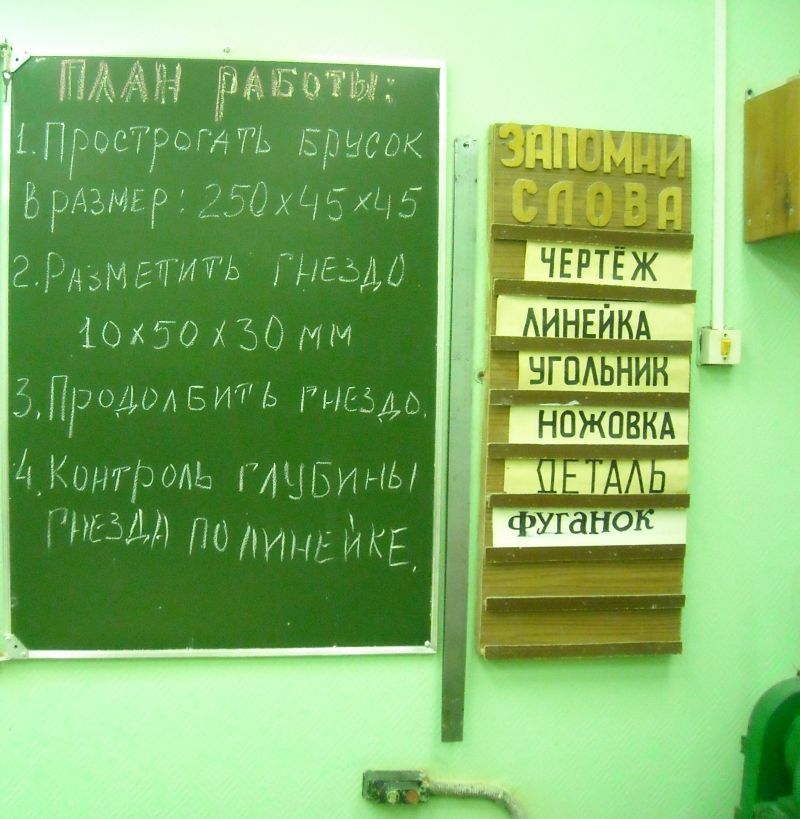 ПЛАН РАБОТЫ:
1. Прострогать брусок
в размер: 250х45х45
2. Разметить гнездо
10х50х30 мм
3. Продолбить гнездо.
4. Контроль глубины
гнезда по линейке.
ЗАПОМНИ
СЛОВА
ЧЕРТЁЖ
ЛИНЕЙКА
УГОЛЬНИК
НОЖОВКА
ДЕТАЛЬ
ФУГАНОК